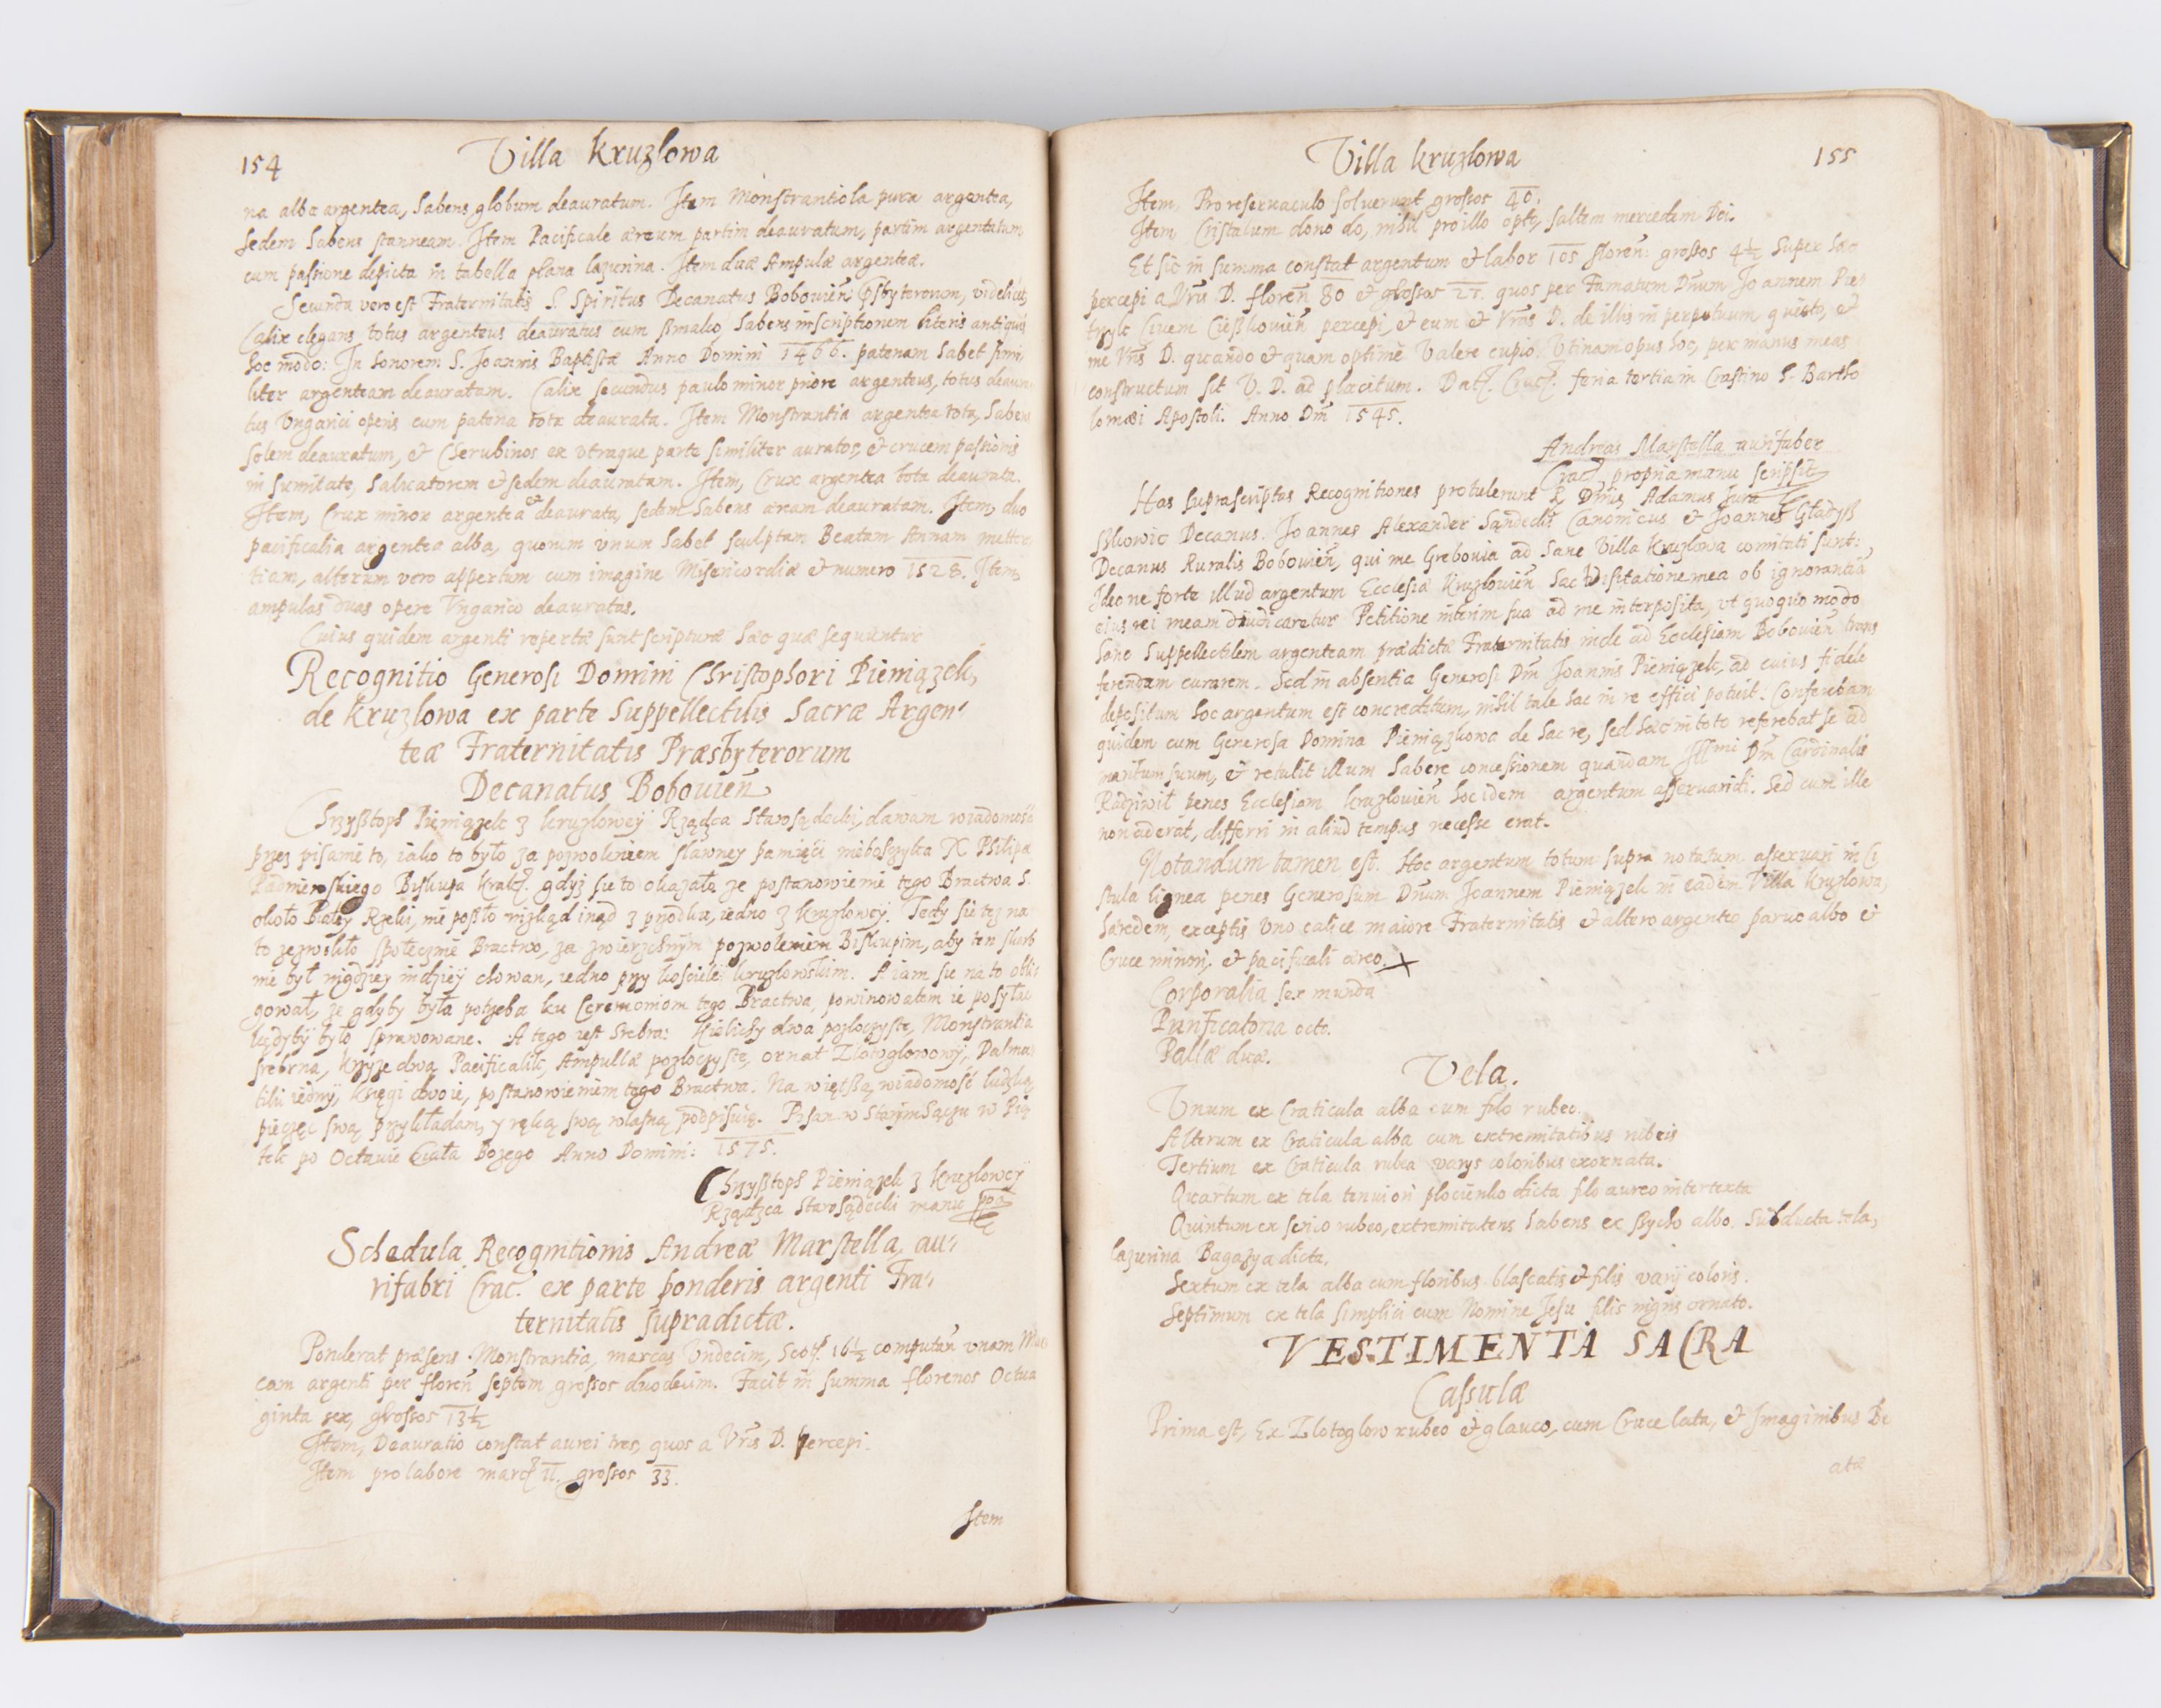 154 Villa Kruzlowa
na alba argentea, habens globum deauratum. Item Monstrantiola pura argentea,
sedem habens stanneam. Item Pacificale æreum partim deauratum, partim argentatum
cum passione depicta in tabella plana lazurina. Item duæ Ampulæ argenteæ.
Secunda vero est Fraternitatis S. Spiritus Decanatus Bobouien̄ Psbyterorum, videlicet,
Calix elegans totus argenteus deauratus cum smalco, habens inscriptionem literis antiquis
hoc modo: In honorem S. Joannis Baptistæ Anno Domini 1466. patenam habet simi
liter argenteam deauratam. Calix secundus paulo minor priore argenteus, totus deaura
tus Vngarici operis cum patena tota deaurata. Item Monstrantia argentea tota, habens
solem deauratum, et Cherubinos ex vtraque parte similiter auratos, et crucem passionis
in sumitate, saluatorem et sedem deauratam. Item, Crux argentea tota deaurata.
Item, Crux minor argentea et deaurata, sedem habens æream deauratam. Item, duo
pacificalia argentea alba, quorum vnum habet sculptam Beatam Annam metter
tiam, alterum vero appertum cum imagine Misericordiæ et numero 1528. Item,
ampulas duas opere Vngarico deauratas.
Cuius quidem argenti repertæ sunt scripturæ hæc quæ sequuntur
Recognitio Generosi Domini Christophori Pieniązek,
de Kruzlowa ex parte Suppellectilis Sacræ Argen,
teæ Fraternitatis Præsbyterorum
Decanatus Bobouien̄
Chrzysztoph Pieniązek z Kruzlowey Rządca Starosądecki, dawam wiadomość
przez pisanie to, iako to było za pozwoleniem sławney pamięci nieboszczyka X Philipa
Padnierskiego Biskupa krakᵒ. gdyż sie to okazało, ze postanowienie tego Bractwa S.
około Białey Rzeki, nie poszło nizkąd inąd z przodku, iedno z Kruzlowey. Tedy sie tez na
to zezwoliło społecznie Bractwo, za zwierzchnym pozwoleniem Biskupim, aby ten skarb
nie był nigdziey indziey chowan, iedno przy kosciele kruzlowskim. A iam sie na to obli:
gował, ze gdyby była potrzeba ku Ceremoniom tego Bractwa, powinowatem ie posyłac
kędyby było sprawowane. A tego iest srebra: Kielichy dwa pozłoczyste, Monstrantia
srebrna, krzyze dwa Pacifikalik, Ampullæ pozłoczyste, ornat Złotogłowowy, Dalma
tiki iedny, księgi dwoie, postanowieniem tego Bractwa. Na więtszą wiadomość ludzką
pieczęć swą przykładam, y ręką swą własną podpisuię. Pisan w Starym Sączu w Pią
tek po Octauie Ciała Bozego Anno Domini: 1575.
Chrzysztoph Pieniązek z Kruzlowey
Rządzca Starosądecki manu ppa
Schedula Recognitionis Andreæ Marstella, au,
rifabri Crac. ex parte ponderis argenti Fra,
ternitatis supradictæ.
Ponderat præsens Monstrantia, marcas Vndecim, Scot. 16½ computan̄ vnam Mar
cam argenti per floren̄ septem grossos duodecim. Facit in summa florenos Octua
ginta sex, grossos 13½
Item, Deauratio constat aurei tres, quos a Vr̄is D. percepi.
Item pro labore marc. 11. grossos 33.
Item
Villa Kruzlowa 155
Item, Pro reseruaculo soluerunt grossos 40.
Item Cristalum dono do, nihil pro illo opto, saltem mercedem Dei.
Et sic in summa constat argentum et labor 105 floren: grossos 4½ super hæc
percepi a Vr̄is D. floren̄ 80 et grossos 27. quos per Famatum Dn̄um Joannem Pie
Ciuem Ciężkouien̄ percepi, et eum et Vr̄as D. de illis in perpetuum quieto, et
me Vr̄is D. quando et quam optime Valere cupio. Vtinam opus hoc, per manus meas
constructum sit V. D. ad placitum. Dat. Crac. feria tertia in Crastino S. Bartho
lomæi Apostoli. Anno Dm̄ 1545.
Andreas Marstella aurifaber
Crac. propria manu scripsit
Has suprascriptas Recognitiones protulerunt R. Dn̄us Adamus Jura
szkowic Decanus. Joannes Alexander Sandecis Canonicus et Joannes Gładysz
Decanus Ruralis Bobouien̄, qui me Grebouia ad hanc Villa Kruzlowa comitati sunt:
Ideo ne forte illud argentum Ecclesiæ Kruzlouien̄ hac Visitatione mea ob ignorantiā
eius rei meam diiudicaretur Petitione interim sua ad me interposita, vt quoquo modo
hanc Suppellectilem argenteam prædictæ Fraternitatis inde ad Ecclesiam Bobouien̄ trans
ferendam curarem. Sed in absentia Generosi Dm̄ Joannis Pieniązek, ad cuius fidele
depositum hoc argentum est concreditum, nihil tale hac in re effici potuit: Conferebam
quidem cum Generosa Domina Pieniązkowa de hac re, sed hæc in toto referebat se ad
maritum suum, et retulit illum habere concessionem quandam Ill̄mi Dm̄ Cardinalis
Radziwił penes Ecclesiam Kruzlouien̄ hoc idem argentum asseruandi. Sed cum ille
non aderat, differri in aliud tempus necesse erat.
Notandum tamen est. Hoc argentum totum supra notatum asseruari in Ci
stula lignea penes Generosum Dn̄um Joannem Pieniązek in eadem Villa Kruzlowa,
hæredem, exceptis Vno calice maiore Fraternitatis et altero argenteo paruo albo et
Cruce minori, et pacificali æreo. X
Corporalia sex munda
Purificatoria octo.
Pallæ duæ.
Vela.
Vnum ex Craticula alba cum filo rubeo.
Alterum ex Craticula alba cum extremitatibus rubeis
Tertium ex Craticula rubea varys coloribus exornata.
Quartum ex tela tenuiori płocienko dicta filo aureo intertexta
Quintum ex serico rubeo, extremitates habens ex szycho albo, subducta tela,
lazurina Bagazya dicta.
Sextum ex tela alba cum floribus blascatis et filis varij coloris.
Septimum ex tela simplici cum Nomine Jesu filis nigris ornato.
VESTIMENTA SACRA
Casulæ
Prima est, Ex Złotogłow rubeo et glauco, cum Cruce lata, et Imaginibus Be
atæ